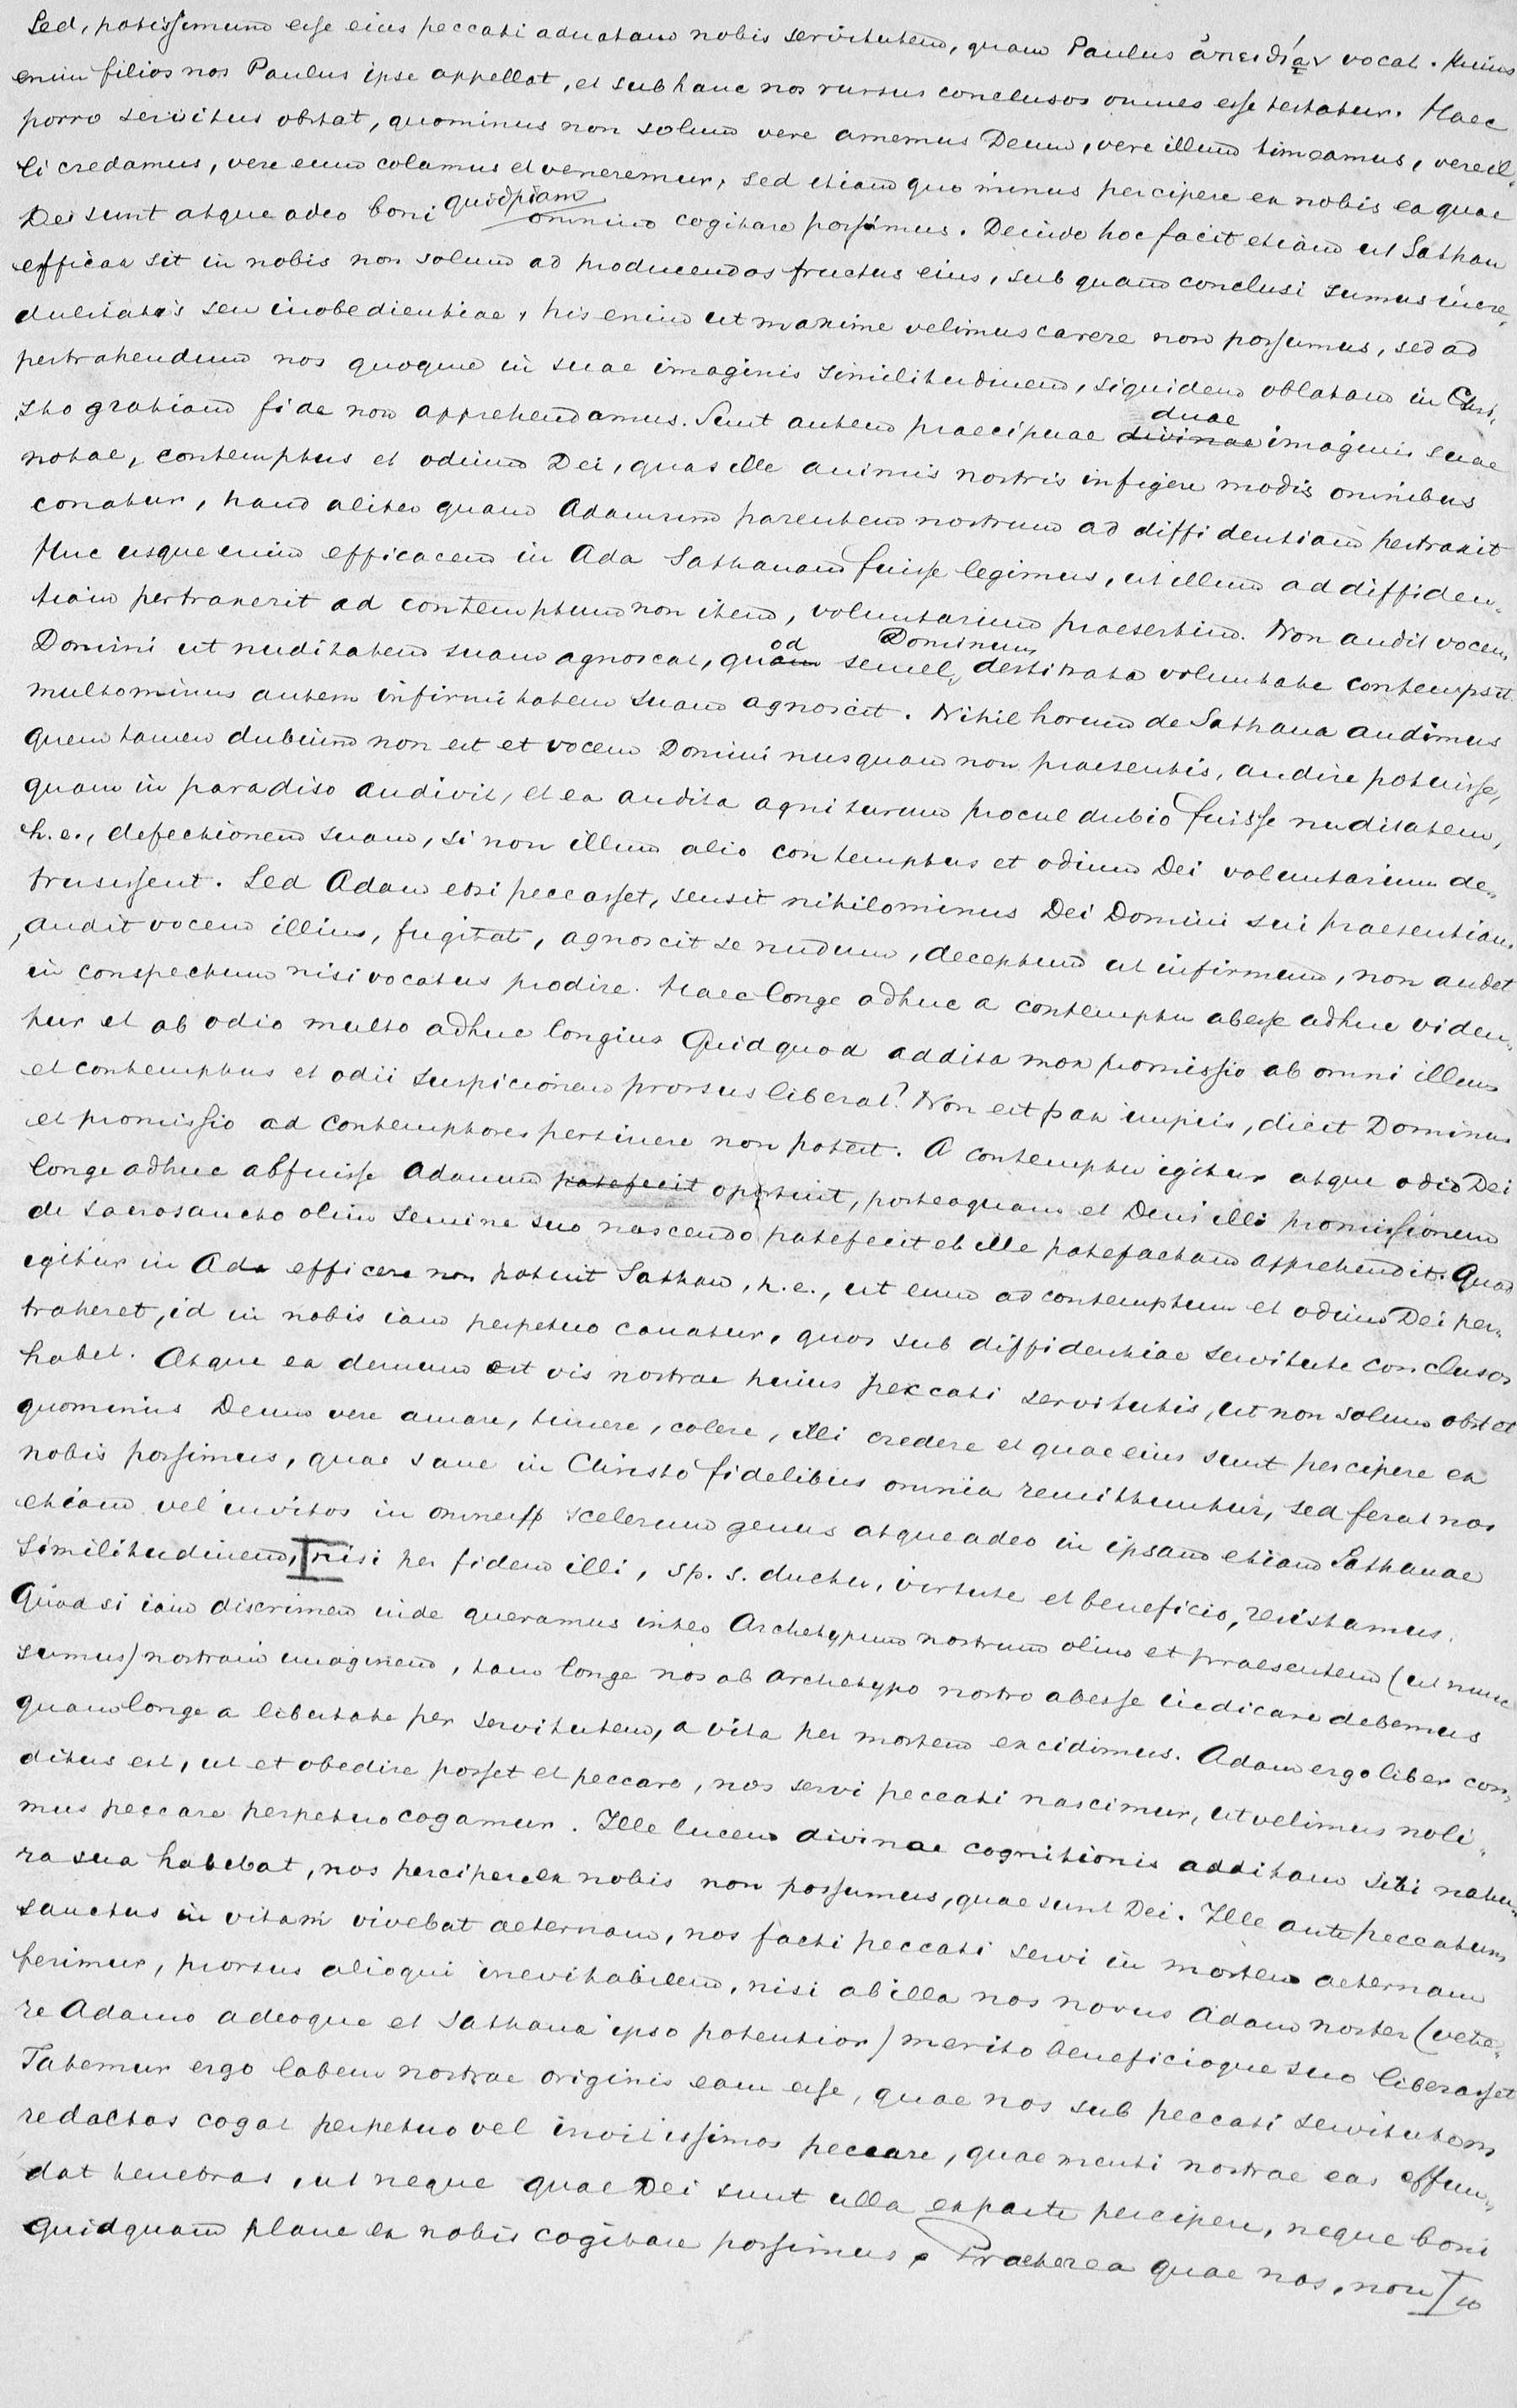 Sed, potissimum esse eius peccati adnatam nobis servitutem, quam Paulus ἀπειθίαν vocat. Huius
enim filios nos Paulus ipse appellat, et sub hanc nos rursus conclusos omnes esse testatur. Haec
porro servitus obstat, quominus non solum vere amemus Deum, vere illum timeamus, vere il„
li credamus, vere eum colamus et veneremur, sed etiam quo minus percipere ex nobis ea quae
Dei sunt atque adeo boni quidpiam omnino cogitare possimus. Deinde hoc facit etiam ut Sathan
efficax sit in nobis non solum ad producendos fructus eius, sub quam conclusi sumus incre„
dulitatis seu inobedientiae, his enim ut maxime velimus carere non possumus, sed ad
pertrahendum nos quoque in suae imaginis similitudinem, siquidem oblatam in Chri„
sto gratiam fide non apprehendamus. Sunt autem praecipuae divinae duae imaginis suae
notae, contemptus et odium Dei, quas ille animis nostris infigere modis omnibus
conatur, haud aliter quam Adamum parentem nostrum ad diffidentiam pertraxit
Huc usque enim efficacem in Ada Sathanam fuisse legimus, ut illum ad diffiden„
tiam pertraxerit ad contemptum non item, voluntarium praesertim. Non audit vocem
Domini ut nuditatem suam agnoscat, quam od semel, Dominum destinata voluntate contempsit
multominus autem infirmitatem suam agnoscit. Nihil horum de Sathana audimus
quem tamen dubium non est et vocem Domini nusquam non praesentis, audire potuisse,
quam in paradiso audivit, et ea audita agniturum procul dubio fuisse nuditatem,
h. e., defectionem suam, si non illum alio contemptus et odium Dei voluntarium de„
trusissent. Sed Adam etsi peccasset, sensit nihilominus Dei Domini sui praesentiam
, audit vocem illius, fugitat, agnoscit se nudum, deceptum ut infirmum, non audet
in conspectum nisi vocatus prodire. Haec longe adhuc a contemptu abesse adhuc viden„
tur et ab odio multo adhuc longius Quidquod addita mox promissio ab omni illum
et contemptus et odii suspicionem prorsus liberat? Non est pax impiis, dicit Dominus
et promissio ad contemptores pertinere non potest. A contemptu igitur atque odio Dei
longe adhuc abfuisse Adamum patefecit oportuit, posteaquam et Deus illi promissionem
de sacrosancto olim semine suo nascendo patefecit et ille patefactam apprehendit. Quod
igitur in Ada efficere non potuit Sathan, h. e., ut eum ad contemptum et odium Dei per„
traheret, id in nobis iam perpetuo conatur, quos sub diffidentiae servitute conclusos
habet. Atque ea demum est vis nostrae huius peccati servitutis, ut non solum obstet
quominus Deum vere amare, timere, colere, illi credere et quae eius sunt percipere ex
nobis possimus, quae sane in Christo fidelibus omnia remittuntur, sed ferat nos
etiam vel invitos in omne scelerum genus atque adeo in ipsam etiam Sathanae
similitudinem, nisi per fidem illi, sp. s. ductu, virtute et beneficio, resistamus.
Quod si iam discrimen inde queramus inter Archetypum nostrum olim et praesentem (ut nunc
sumus) nostram imaginem, tam longe nos ab archetypo nostro abesse iudicare debemus
quam longe a libertate per servitutem, a vita per mortem excidimus. Adam ergo liber con„
ditus est, ut et obedire posset et peccare, nos servi peccati nascimur, ut velimus noli„
mus peccare perpetuo cogamur. Ille lucem divinae cognitionis additam sibi natu„
ra sua habebat, nos percipere ex nobis non possumus, quae sunt Dei. Ille ante peccatum
sanctus in vitam vivebat aeternam, nos facti peccati servi in mortem aeternam
ferimur, prorsus alioqui inevitabilem, nisi ab illa nos novus Adam noster (vete„
re Adamo adeoque et Sathana ipso potentior) merito beneficioque suo liberasset
Fatemur ergo labem nostrae originis eam esse, quae nos sub peccati servitutem
redactos cogat perpetuo vel invitissimos peccare, quae menti nostrae eas offun„
dat tenebras, ut neque quae Dei sunt ulla ex parte percipere, neque boni
quidquam plane ex nobis cogitare possimus. Praeterea quae nos, non